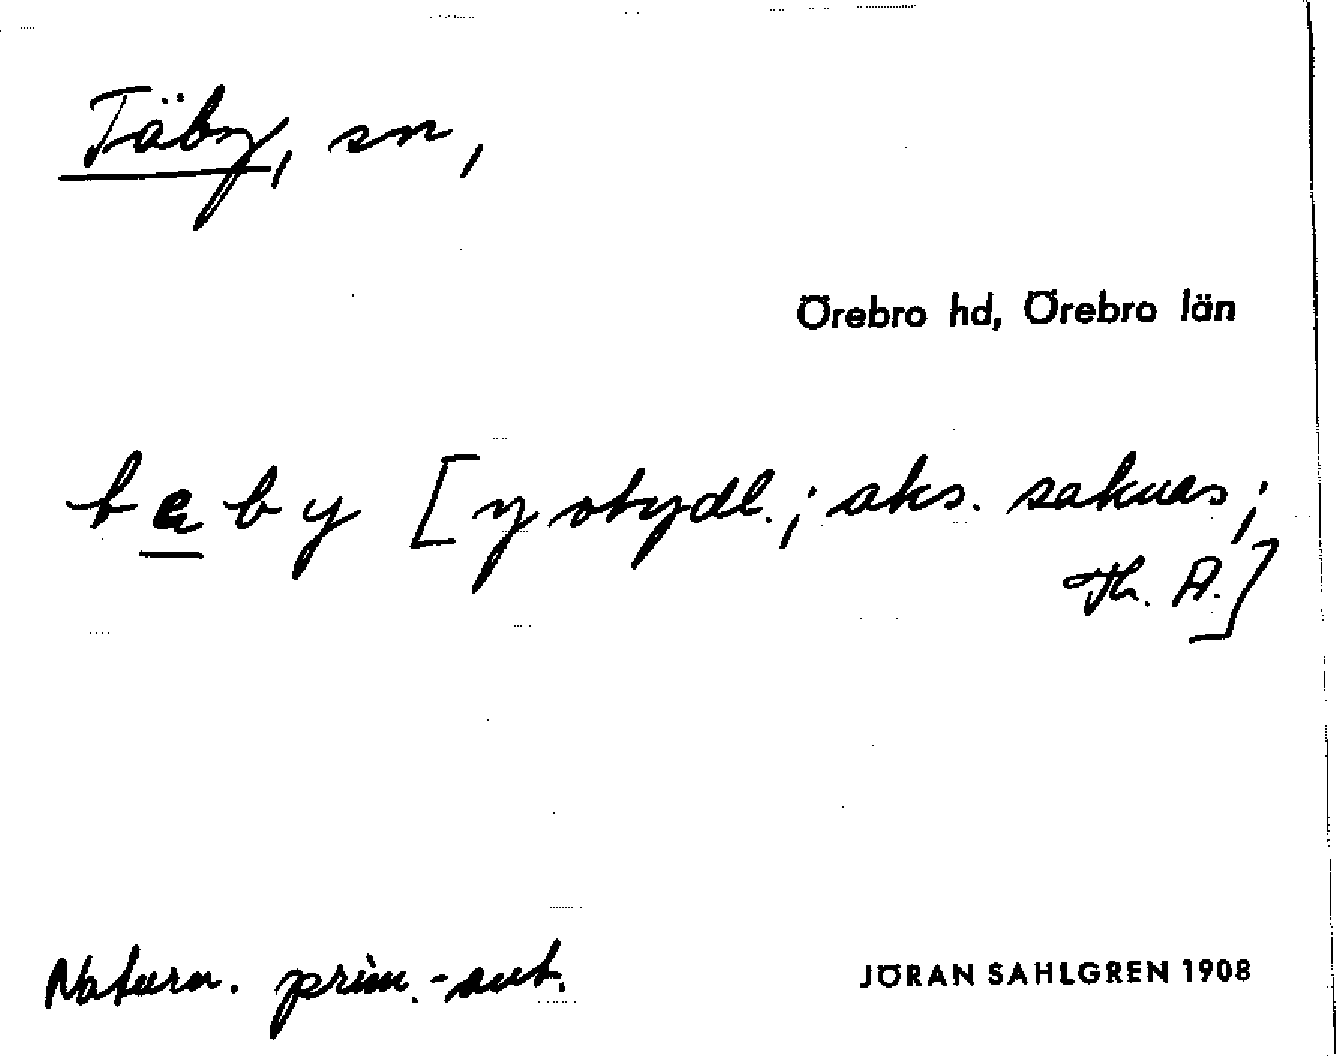 Täby, sn,
Örebro hd, Örebro län
tæby [y otydl.; aks. saknas;
Th. A.]
Naturn. prim.-ant.
JÖRAN SAHLGREN 1908